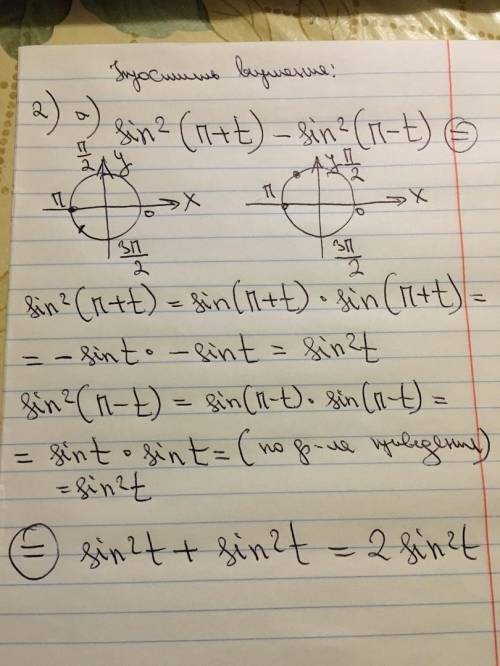 Упростить выражение:
2) a) sin² (π+t) - sin² (π-t) =
π/2 y π y π/2
π 0 x 0 x
3π/2 3π/2
sin² (π+t) = sin(π+t) · sin(π+t) =
= - sin t · - sin t = sin²t
sin² (π-t) = sin(π-t) · sin(π-t) =
= sin t · sin t = (по ф-ле приведения)
= sin²t
= sin²t + sin²t = 2 sin²t